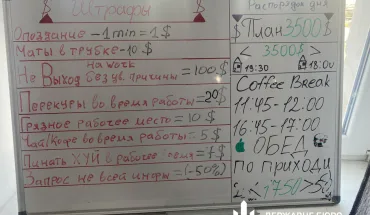 Штрафы
Опоздание - 1 min = 1$
Маты в трубке - 10$
Не Выход на work без ув причины = 100$
Перекуры во время работы = 20$
Грязное рабочее место = 10$
Чай/Кофе во время работы = 5$
Пинать ХУЙ в рабочее время = 7$
Запрос не всей инфы = (-50%)
Распорядок дня
План 3500$
< 3500$ >
Coffee Break
11:45-12:00
16:45-17:00
ОБЕД
ПО ПРИХОДИ